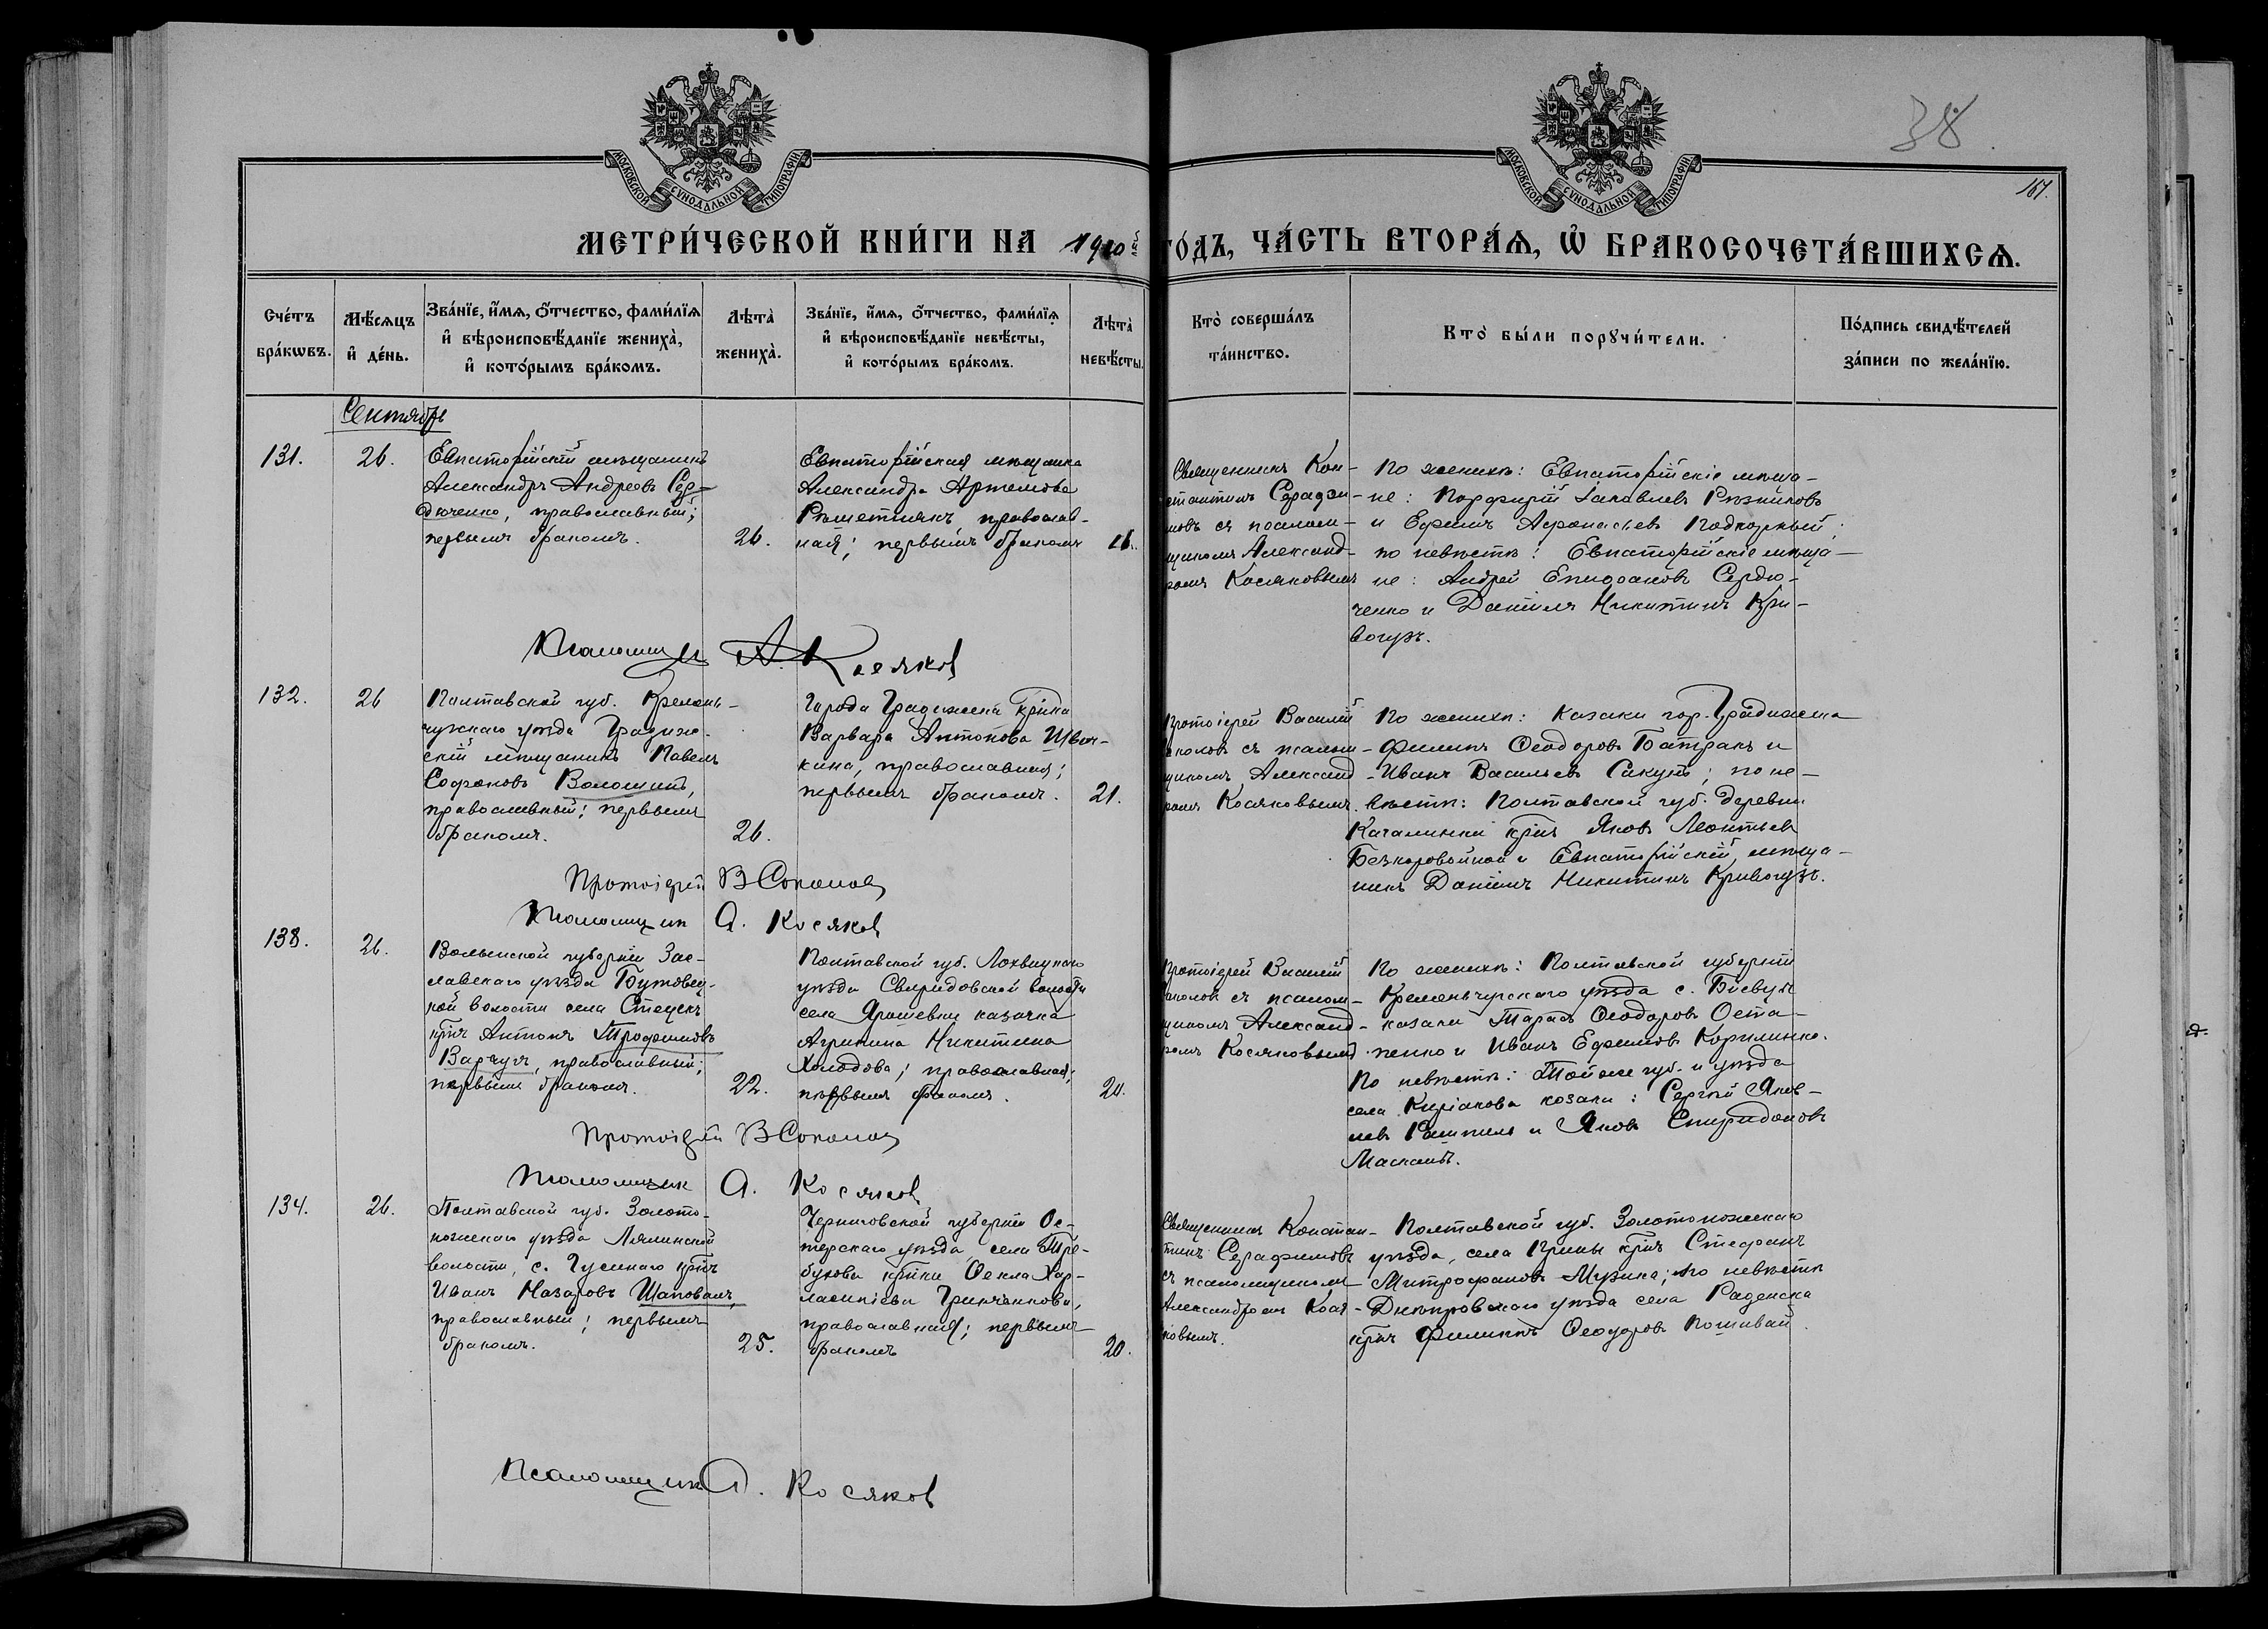 МОСКОВСКОЙ СѴНОДАЛЬНОЙ ТИПОГРАФІИ.
МОСКОВСКОЙ СѴНОДАЛЬНОЙ ТИПОГРАФІИ.
38
167.
МЕТРИ́ЧЕСКОЙ КНИ́ГИ НА 1910й
ГО́ДЪ, ЧА́СТЬ ВТОРА́Ѧ, Ѽ БРАКОСОЧЕТА́ВШИХСѦ.
Сче́тъ бра́кѡвъ.
Мѣ́сѧцъ и҆ де́нь.
Зва́нїе, и҆́мѧ, ѻ҆́тчество, фами́лїѧ и҆ вѣроисповѣ́данїе жениха̀, и҆ кото́рымъ бра́комъ.
Лѣта̀ жениха̀.
Зва́нїе, и҆́мѧ, ѻ҆́тчество, фами́лїѧ и҆ вѣроисповѣ́данїе невѣ́сты, и҆ кото́рымъ бра́комъ.
Лѣта̀ невѣ́сты.
Кто̀ соверша́лъ та́инство.
Кто̀ бы́ли порꙋчи́тели.
По́дпись свидѣ́телей за́писи по жела́нїю.
Сентябрь
131.
26.
Евпаторійскій мѣщанинъ
Александръ Андреевъ Сер-
дюченко, православный;
первымъ бракомъ.
26.
Евпаторійская мѣщанка
Александра Артемова
Рѣшетнякъ, православ-
ная; первымъ бракомъ
Священникъ Кон-
стантинъ Серафи-
мовъ съ псалом-
щикомъ Александ-
ромъ Косяковымъ
По женихѣ: Евпаторійскіе мѣща-
не: Порфирій Іаковлевъ Рѣзниковъ
и Ефимъ Афанасьевъ Подкорный;
по невѣстѣ: Евпаторійскіе мѣща-
не: Андрей Епифановъ Сердю-
ченко и Даніилъ Никитинъ Кри-
вогузъ.
Псаломщикъ А. Косяковъ
132.
26
Полтавской губ. Кремен-
чужскаго уѣзда Градиж-
скій мѣщанинъ Павелъ
Софроновъ Волошинъ,
православный; первымъ
бракомъ.
26.
Города Градижска крѣнка
Варвара Антонова Швыч-
кина, православная;
первымъ бракомъ.
21.
Протоіерей Василій
Соколовъ съ псалом-
щикомъ Александ-
ромъ Косяковымъ.
По женихѣ: Казаки гор. Градижска
Филиппъ Ѳеодоровъ Батракъ и
Иванъ Васильевъ Сакунъ; по не-
вѣстѣ: Полтавской губ. деревни
крнъ Яковъ Леонтьевъ
Безкоровойной и Евпаторійскій мѣща-
нинъ Даніилъ Никитинъ Кривогузъ.
Протоіерей В Соколовъ
Псаломщикъ А. Косяковъ
133.
26.
Волынской губерніи Зас-
лавскаго уѣзда
кой волости села
крнъ Антонъ Трофимовъ
Варчукъ, православный;
первымъ бракомъ.
22.
Полтавской губ. Лохвицкаго
уѣзда Свиридовской волости
села Ярошевки казачка
Агрипина Никитина
Холодова; православная;
первымъ бракомъ.
Протоіерей Василій
Соколовъ съ псалом-
щикомъ Александ-
ромъ Косяковымъ
По женихѣ: Полтавской губерніи
Кременчугскаго уѣзда с.
казаки Тарасъ Ѳеодоровъ Оста-
пенко и Иванъ Ефимовъ
По невѣстѣ: Той же губ. и уѣзда
села казаки: Сергій Яков-
левъ и Яковъ Спиридоновъ
Протоіерей В Соколовъ
Псаломщикъ А. Косяковъ
134.
26.
Полтавской губ. Золото-
ношскаго уѣзда Лялинской
волости, с. Гусинаго крнъ
Иванъ Назаровъ Шаповалъ,
православный; первымъ
бракомъ.
25.
Черниговской губерніи Ос-
терскаго уѣзда, села Тре-
бухова крѣнка Ѳекла Хар-
лампіева Гринченкова,
православная; первымъ
бракомъ
20.
Священникъ Констан-
тинъ Серафимовъ
съ псаломщикомъ
Александромъ Кося-
ковымъ.
Полтавской губ. Золотоношскаго
уѣзда, села крнъ Стефанъ
Митрофановъ Музика; по невѣстѣ
Днѣпровскаго уѣзда села Раденска
крнъ Филиппъ Ѳеодоровъ Пошивай.
Псаломщикъ А. Косяковъ